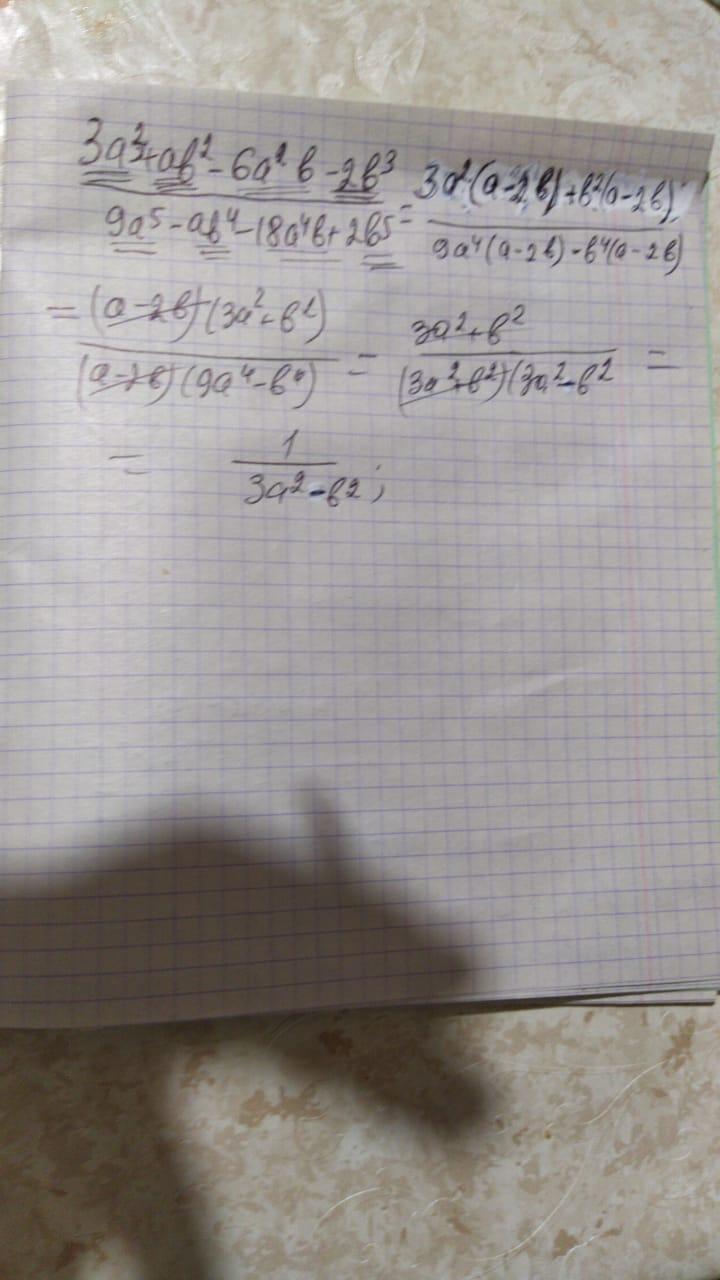 3a³+ab²-6a²b-2b³ / 9a⁵-ab⁴-18a⁴b+2b⁵ = 3a²(a-2b)+b²(a-2b) / 9a⁴(a-2b)-b⁴(a-2b)
= (a-2b)(3a²+b²) / (a-2b)(9a⁴-b⁴) = 3a²+b² / (3a²+b²)(3a²-b² =
= 1 / 3a²-b² ;